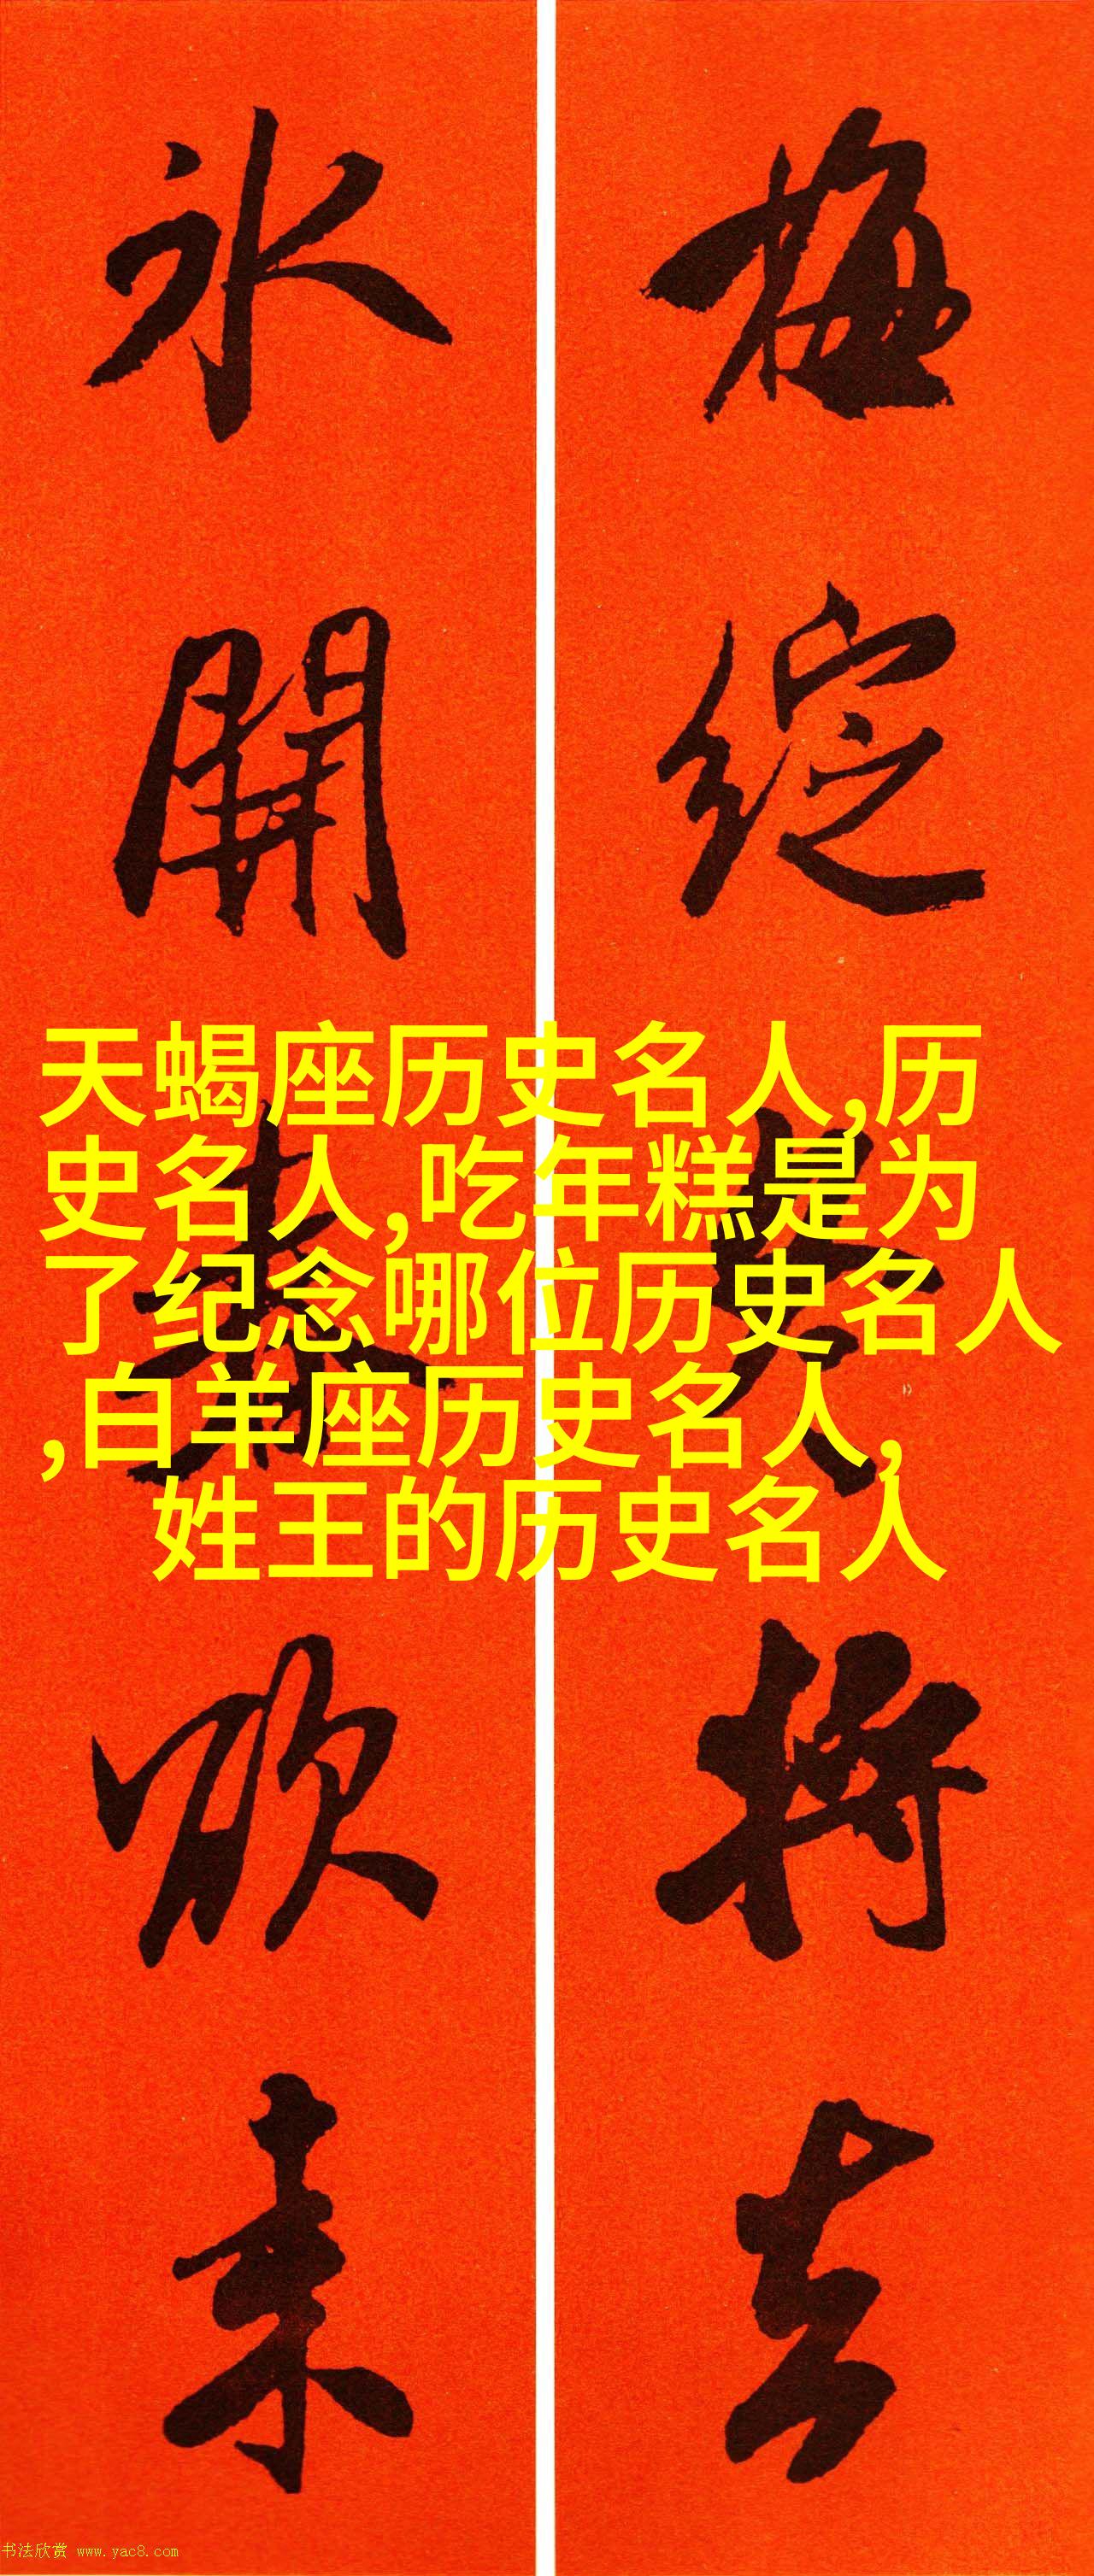 梅綻冬将去
氷開春欲来
天蝎座历史名人,历
史名人,吃年糕是为
了纪念哪位历史名人
,白羊座历史名人,
姓王的历史名人
书法欣赏 www.yac8.com